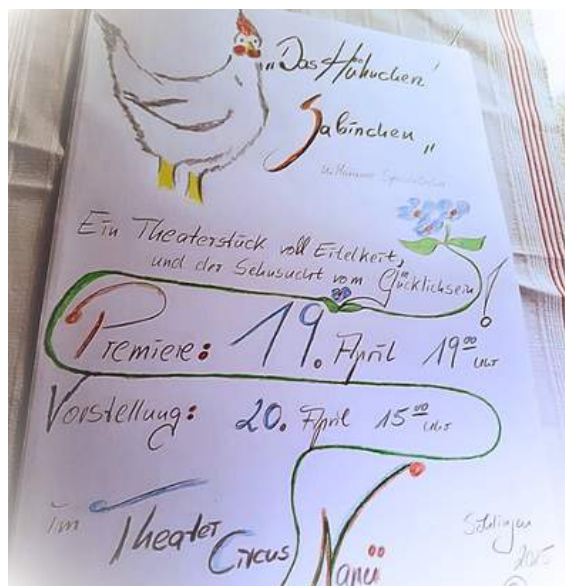 „Das Hühnchen
Sabinchen„
Ein Theaterstück voll Eitelkeit,
und der Sehnsucht vom Glücklichsein!
Premiere: 19. April 19⁰⁰ Uhr
Vorstellung: 20. April 15⁰⁰ Uhr
im Theater Circus Nanü
2025